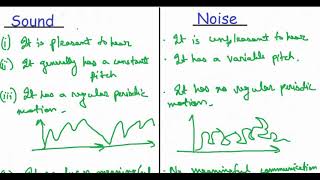 Sound
(i) It is pleasant to hear
(ii) It generally has a constant
pitch
(iii) It has a regular periodic
motion.
Noise
· It is unpleasant to hear
· It has a variable pitch.
· It has no regular periodic
motion.
No meaningful communication